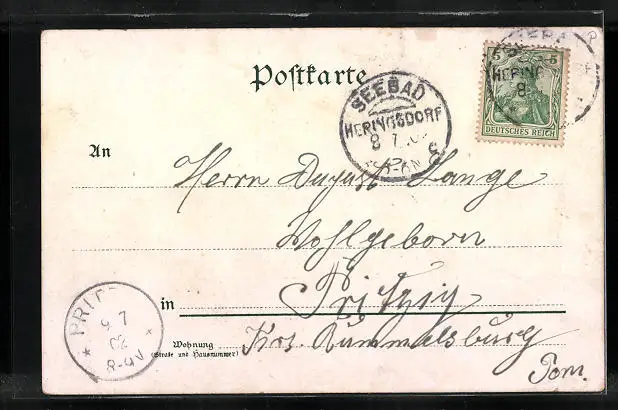 Postkarte
SEEBAD
HERINGSDORF
8 7
5 5
HERING
8
DEUTSCHES REICH
An
Herrn August Lange
Wohlgeborn
in Pritzig
Wohnung
(Straße und Hausnummer)
Krs. Rummelsburg
Pom.
PRIT
9 7
02
8-9V